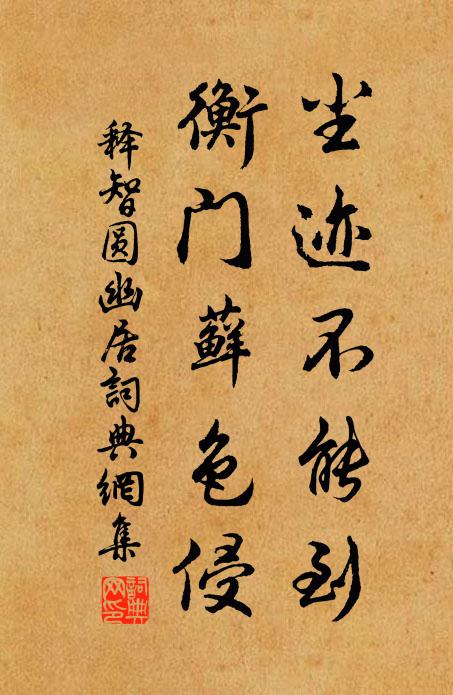 尘迹不能到
衡门藓色侵
释智圆幽居词典網集
詞典网印